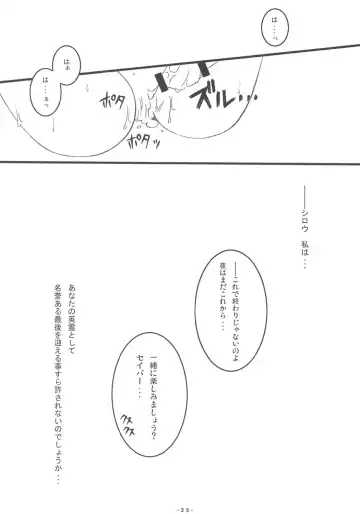 は・・・っ
はぁ
は・・・ぁっ
ズル・・・
ポタ
ポタ
――シロウ　私は・・・
――これで終わりじゃないのよ
夜はまだこれから・・・
一緒に楽しみましょう？
セイバー・・・
クス
クス
あなたの英霊として
名誉ある最後を迎える事すら許されないのでしょうか・・・
-23-